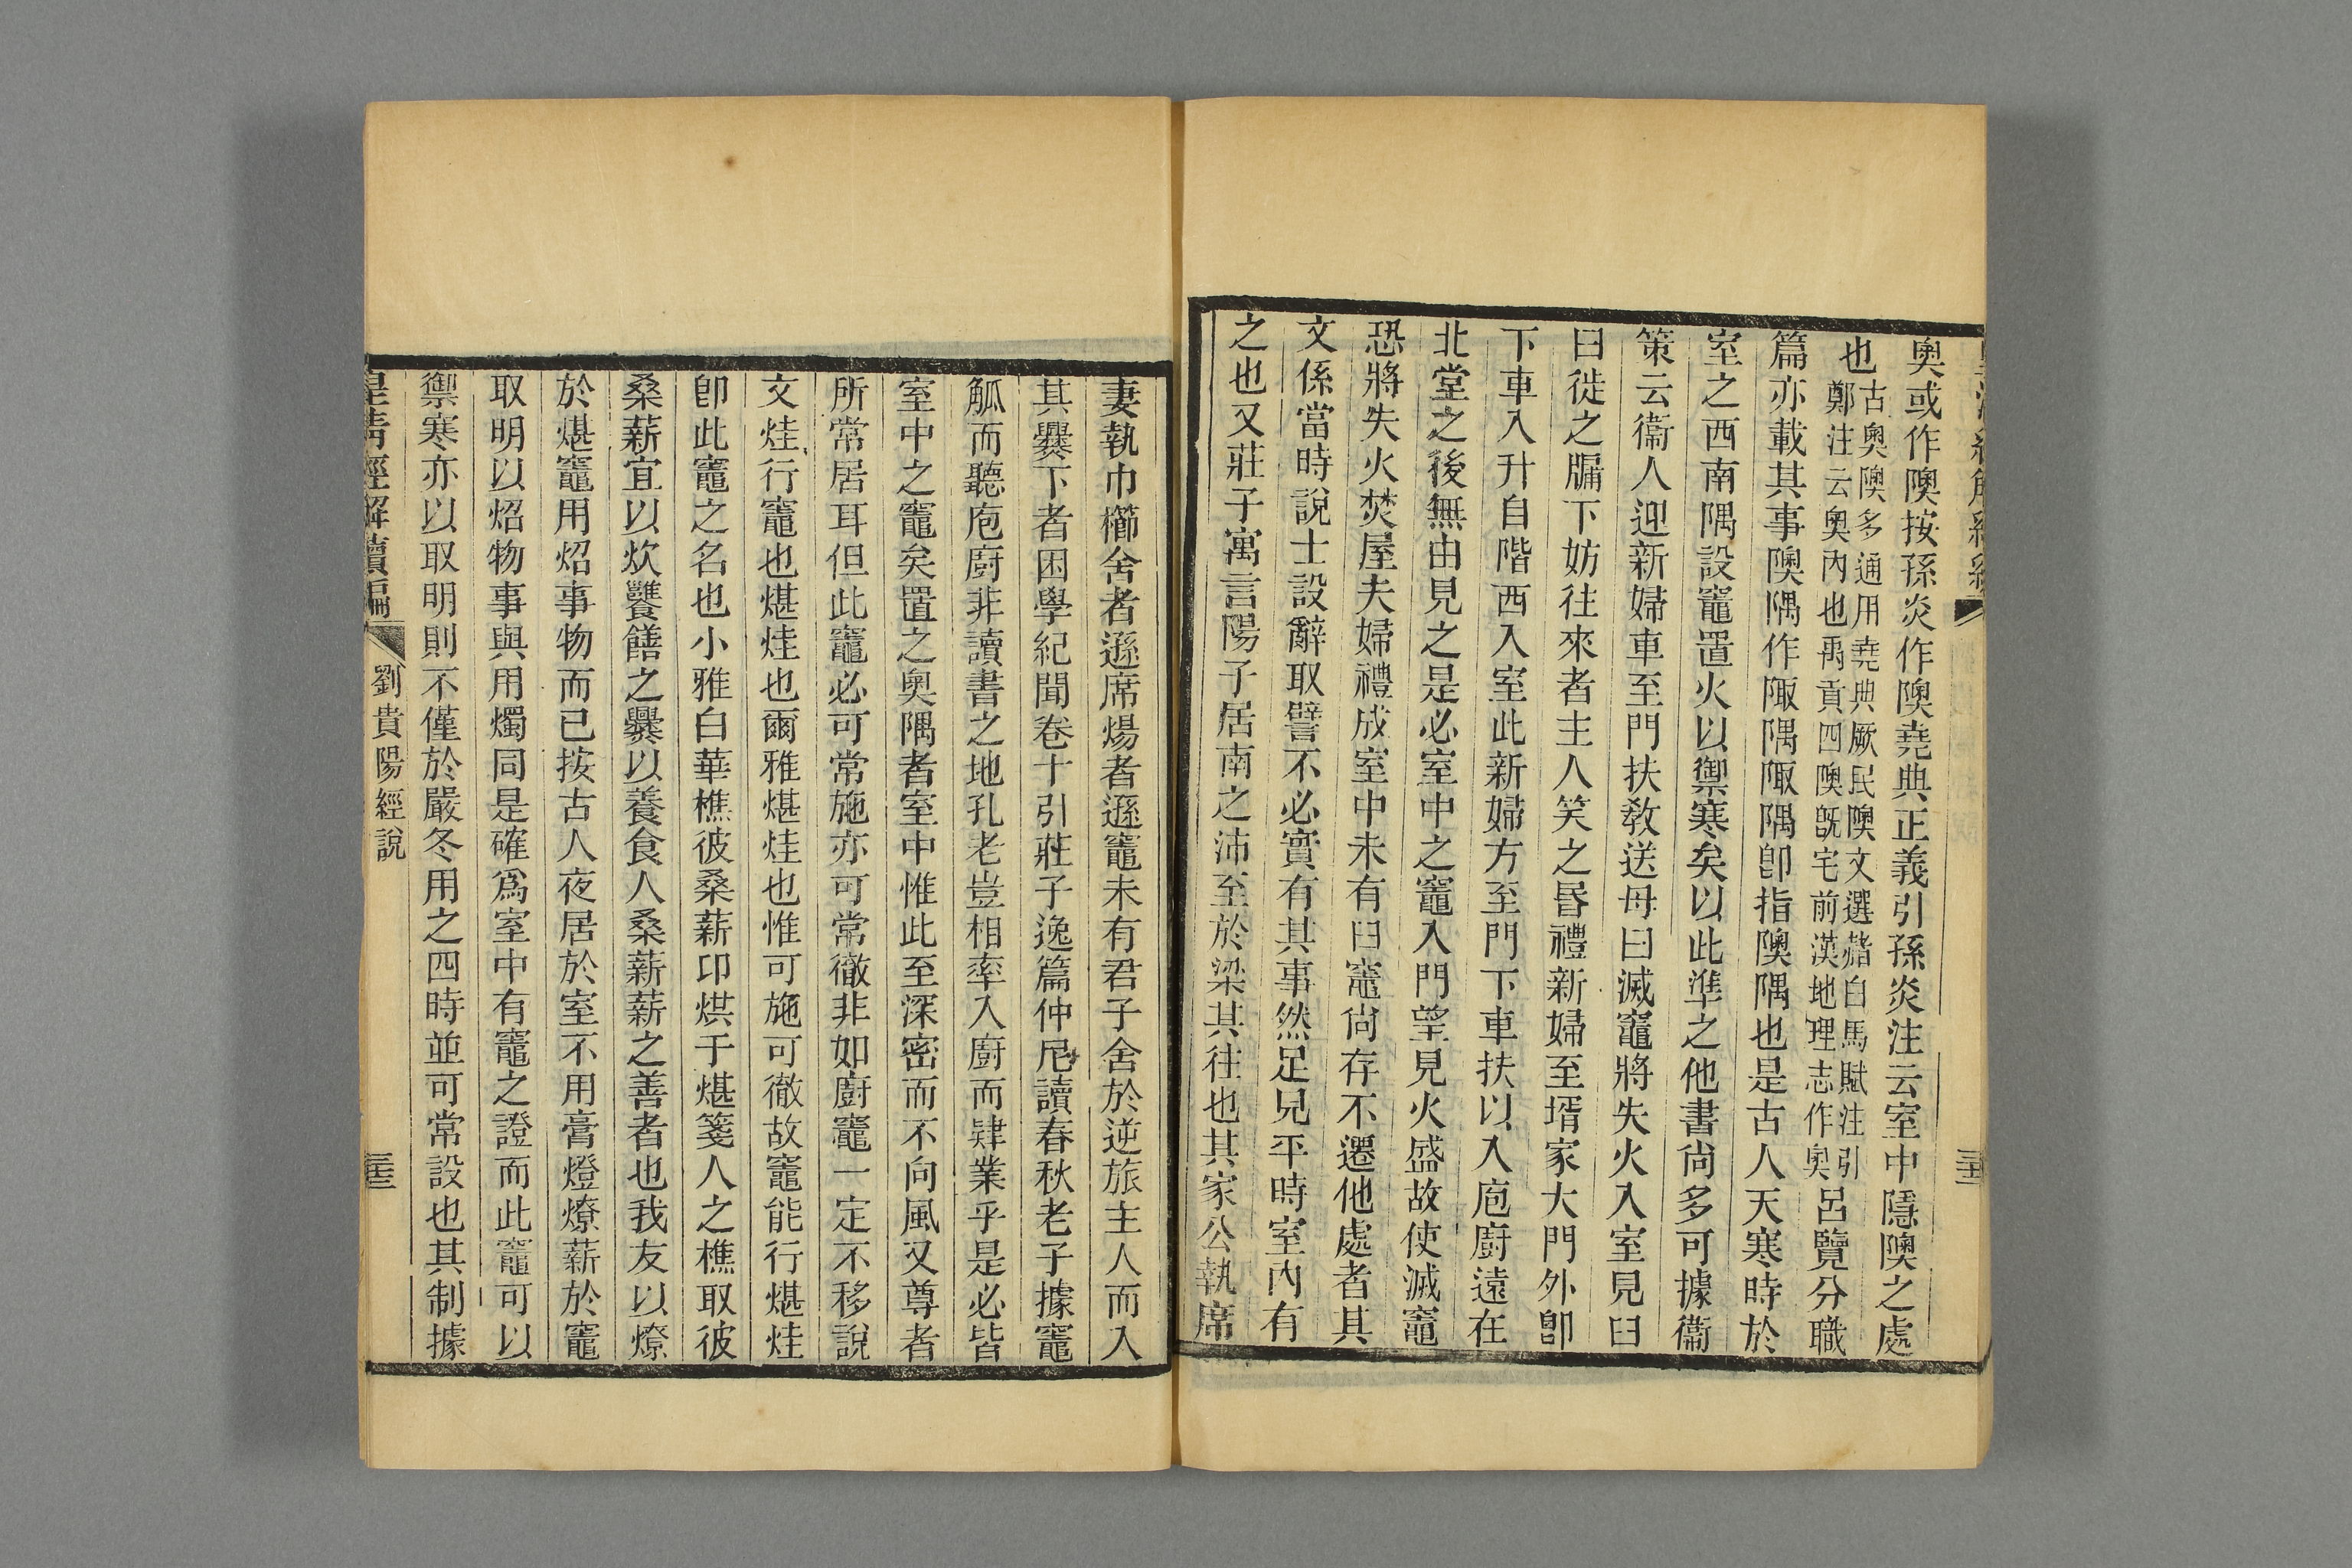 奧或作隩按孫炎作隩堯典正義引孫炎注云室中隱隩之處
也古奧隩多通用堯典厥民隩文選赭白馬賦注引
鄭注云奧內也禹貢四隩旣宅前漢地理志作奧呂覽分職
篇亦載其事隩隅作陬隅陬隅卽指隩隅也是古人天寒時於
室之西南隅設竈置火以禦寒矣以此準之他書尚多可據衞
策云衞人迎新婦車至門扶敎送母曰滅竈將失火入室見臼
曰徙之牖下妨往來者主人笑之昬禮新婦至壻家大門外卽
下車入升自階西入室此新婦方至門下車扶以入庖廚遠在
北堂之後無由見之是必室中之竈入門望見火盛故使滅竈
恐將失火焚屋夫婦禮成室中未有臼竈尙存不遷他處者其
文係當時說士設辭取譬不必實有其事然足見平時室內有
之也又莊子寓言陽子居南之沛至於梁其往也其家公執席
妻執巾櫛舍者遜席煬者遜竈未有君子舍於逆旅主人而入
其爨下者困學紀聞卷十引莊子逸篇仲尼讀春秋老子據竈
觚而聽庖廚非讀書之地孔老豈相率入廚而肄業乎是必皆
室中之竈矣置之奧隅者室中惟此至深密而不向風又尊者
所常居耳但此竈必可常施亦可常徹非如廚竈一定不移說
文烓行竈也煁烓也爾雅煁烓也惟可施可徹故竈能行煁烓
卽此竈之名也小雅白華樵彼桑薪卬烘于煁箋人之樵取彼
桑薪宜以炊饔饍之爨以養食人桑薪薪之善者也我友以燎
於煁竈用炤事物而已按古人夜居於室不用膏燈燎薪於竈
取明以炤物事與用燭同是確爲室中有竈之證而此竈可以
禦寒亦以取明則不僅於嚴冬用之四時並可常設也其制據
皇清經解續編
劉貴陽經說